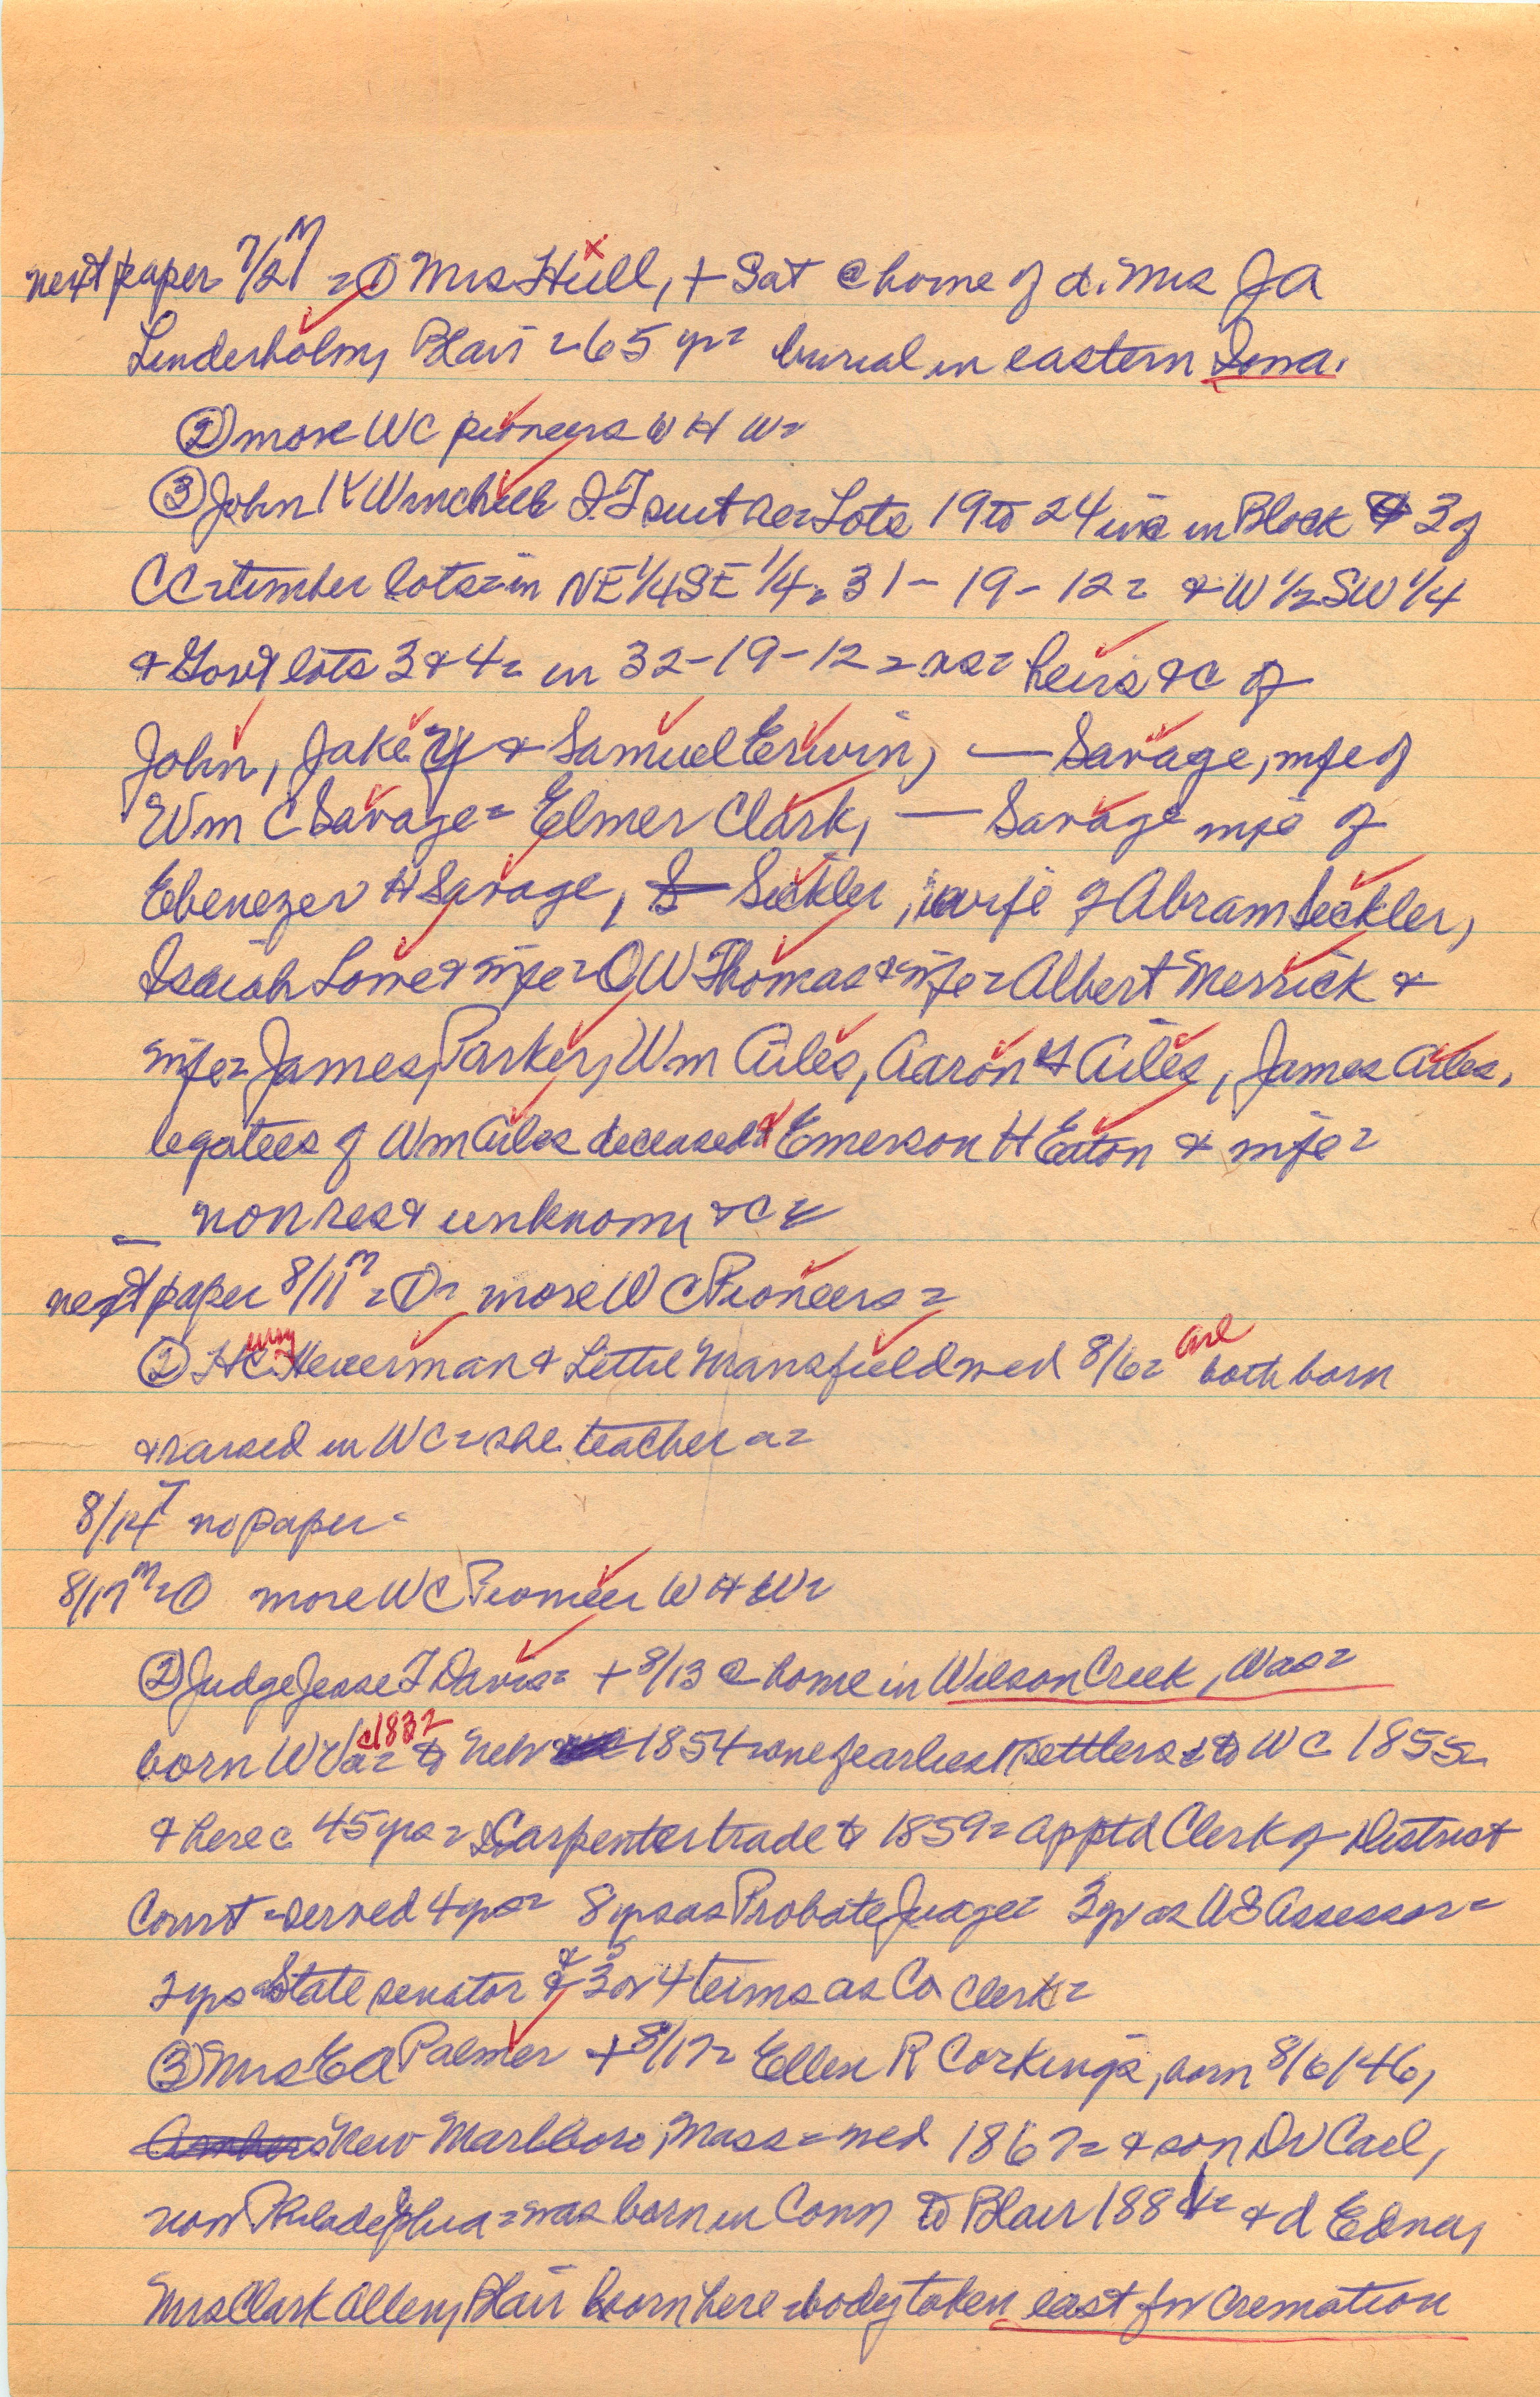 next paper 7/27 M = ① Mrs Hull, + Sat @ home of d. Mrs JA
Linderholm, Blair = 65 yr = burial in eastern Iowa.
② more WC pioneers W H W =
③ John K Winchell suit Lots 19 to 24 in Block 3 of
CC = timber lots = in NE 1/4 SE 1/4 = 31 - 19 - 12 = & W 1/2 SW 1/4
& Govt lots 3 & 4 = in 32 - 19 - 12 = vs = heirs &c of
John, Jake Y & Samuel Erwin, — Savage, wife of
Wm C Savage = Elmer Clark, — Savage wife of
Ebenezer H Savage, — Sickler, wife of Abram Sickler,
Isaiah Lowe & wife = O W Thomas & wife = Albert Merrick &
wife = James Parker, Wm Ailes, Aaron H Ailes, James Ailes,
legatees of Wm Ailes deceased & Emerson H Eaton & wife =
non res & unknown &c =
next paper 8/11 M = ① = more WC Pioneers =
② H C Heuerman & Lettie Mansfield wed 8/6 = both born
& raised in WC = she teacher =
8/14 T no paper -
8/17 M = ① more WC Pioneer W H W =
② Judge Jesse T Davis = + 8/13 @ home in Wilson Creek, Was =
born W Va = c1832 to Neb 1854 = one of earliest settlers = to WC 1855 =
& here c 45 yrs = Carpenter trade to 1859 = apptd Clerk of District
Court = served 4 yrs = 8 yrs as Probate Judge = 3 yr as US Assessor =
2 yrs State senator & 3 or 4 terms as Co Clerk =
③ Mrs EA Palmer + 8/17 = Ellen R Corkings, born 8/6/46,
New Marlboro, Mass = wed 1867 = & son Dr Carl,
now Philadelphia = was born in Conn to Blair 188 & d Edna,
Mrs Clark Allen, Blair born here = body taken east for cremation